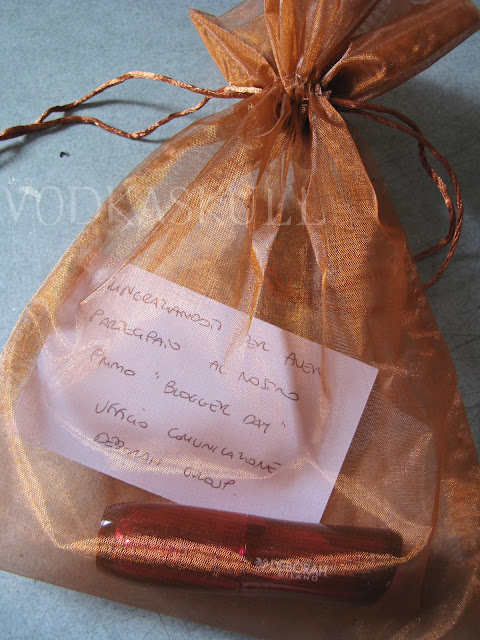 VODKASKULL
RINGRAZIANDOTI PER AVER
PARTECIPATO AL NOSTRO
PRIMO "BLOGGER DAY"
UFFICIO COMUNICAZIONE
DEBORAH GROUP.
DEBORAH
MILANO